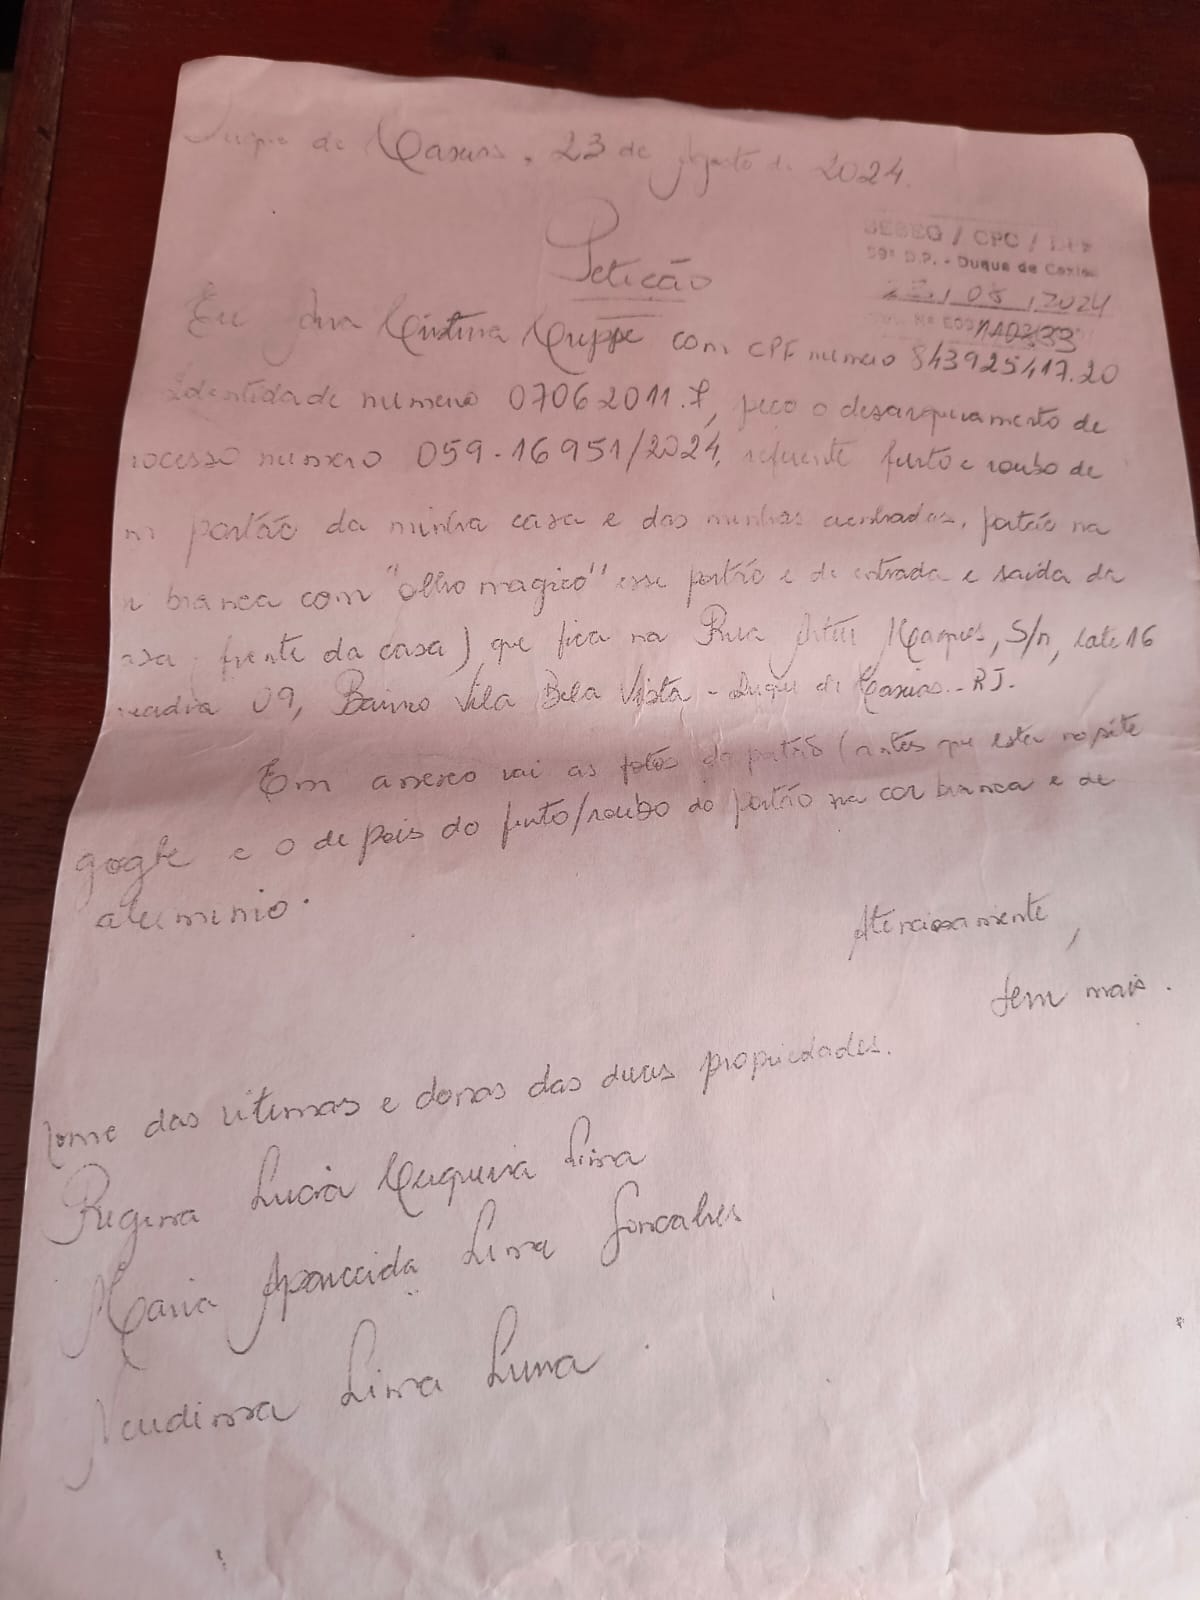 Duque de Caxias, 23 de Agosto de 2024.
Petição
SESEG / CPC /
59ª D.P. - Duque de Caxias
/ 08 / 2024
Eu Ana Cristina com CPF numero 843925417.20
Identidade numero 07062011.7, peço o desarquivamento de
rocesso numero 059-16951/2024, referente furto e roubo de
m portão da minha casa e das minhas cunhadas, portão na
r branca com "olho magico" esse portão e de entrada e saida da
asa, frente da casa) que fica na Rua Artur Marques, S/n, lote 16
uadra 09, Bairro Vila Bela Vista - Duque de Caxias - RJ.
Em anexo vai as fotos do portão (antes que esta no site
gogle e o de pois do furto/roubo do portão na cor branca e de
aluminio.
Atenciosamente,
Sem mais.
Nome das vitimas e donas das duas propriedades.
Regina Lucia Lima
Maria Aparecida Lima Goncalves
Naudinna Lima Luna